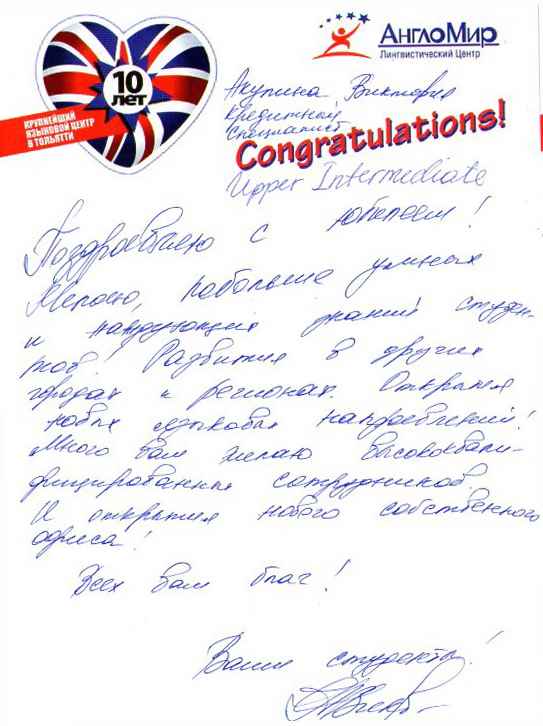 10
ЛЕТ
КРУПНЕЙШИЙ
ЯЗЫКОВОЙ ЦЕНТР
В ТОЛЬЯТТИ
АнглоМир
Лингвистический Центр
Акулина Виктория
кредитный
специалист
Congratulations!
Upper Intermediate
Поздравляю с юбилеем!
Желаю, побольше умных
и жаждующих знаний студен-
тов! Развития в других
городах и регионах. Открытия
новых языковых направлений!
Много вам желаю высококвали-
фицированных сотрудников.
И открытия нового собственного
офиса!
Всех вам благ!
Ваши студенты!